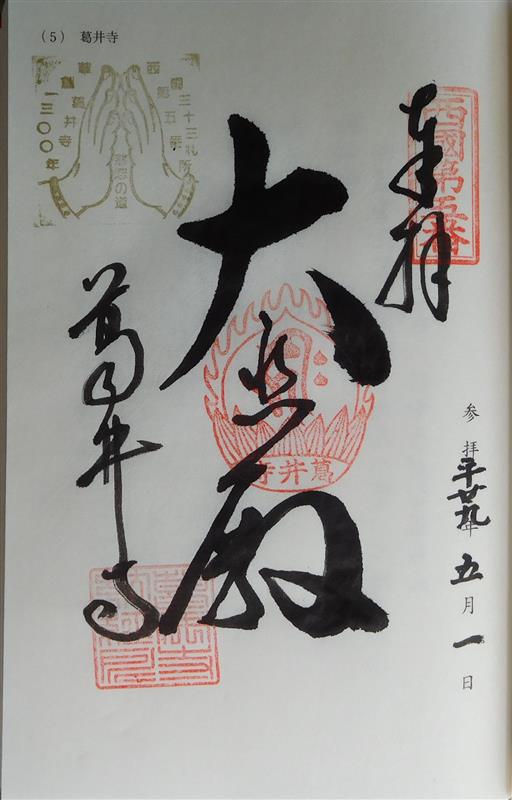 (5) 葛井寺
奉拝
西國第五番
大悲殿
葛井寺
葛井寺
西國三十三札所
第五番
葛井寺
一三〇〇年
慈悲の道
参拝
平廿九年
五月一日